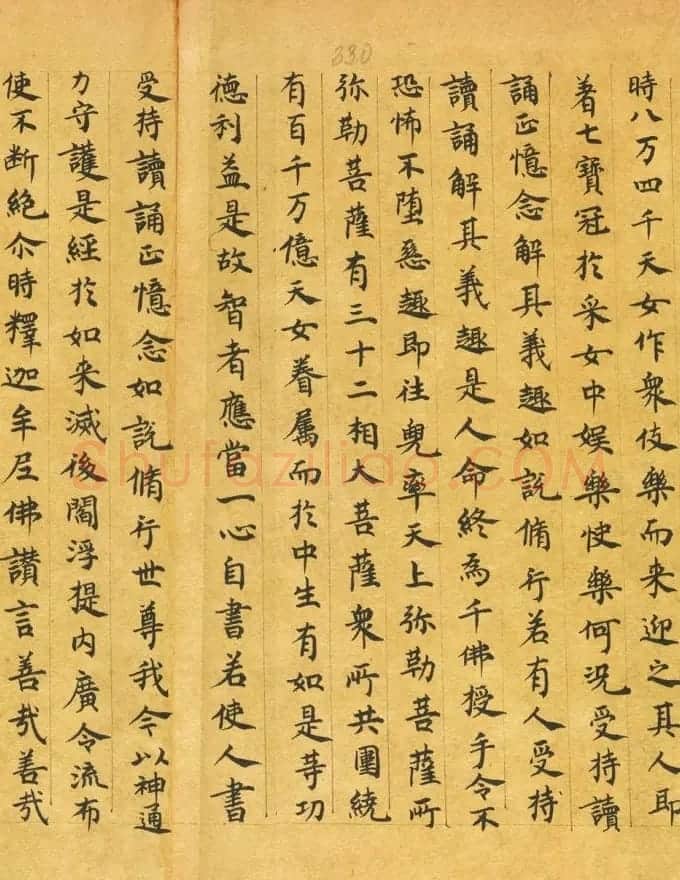 330
時八万四千天女作衆伎樂而来迎之其人即
著七寶冠於采女中娱樂快樂何況受持讀
誦正憶念解其義趣如說脩行若有人受持
讀誦解其義趣是人命終為千佛授手令不
恐怖不堕惡趣即往兜率天上弥勒菩薩所
弥勒菩薩有三十二相大菩薩衆所共圍繞
有百千万億天女眷屬而於中生有如是等功
德利益是故智者應當一心自書若使人書
受持讀誦正憶念如說脩行世尊我今以神通
力守護是經於如来滅後閻浮提内廣令流布
使不断絶尒時釋迦牟尼佛讃言善哉善哉
shufaziliao.COM